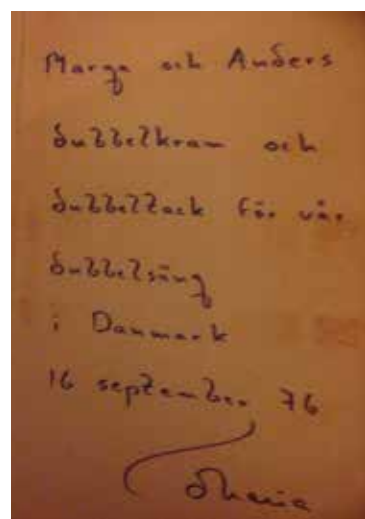 Marga och Anders
dubbelkram och
dubbeltack för vår
dubbelsäng
i Danmark
16 september 76
Maria